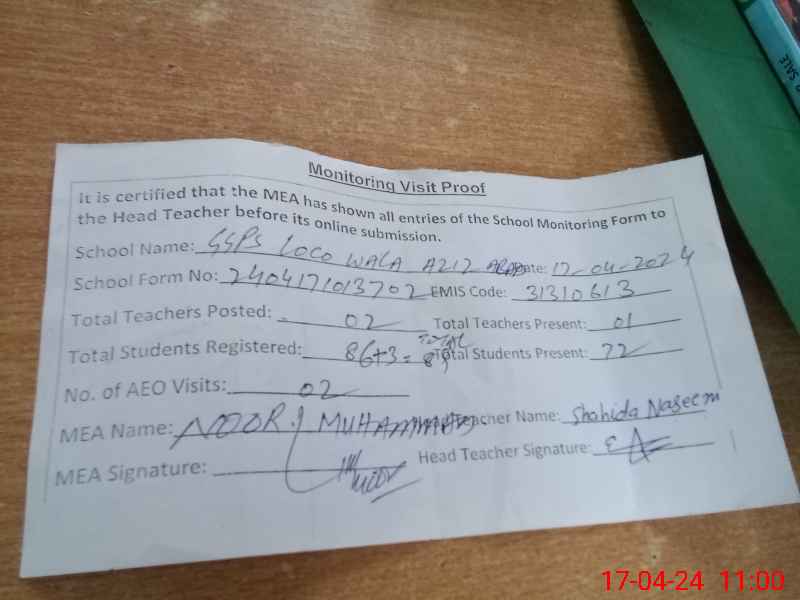 Monitoring Visit Proof
It is certified that the MEA has shown all entries of the School Monitoring Form to
the Head Teacher before its online submission.
School Name: GGPS LOCO WALA AZIZ ABAD Date: 17-04-2024
School Form No: 2404171013702 EMIS Code: 31310613
Total Teachers Posted: 02 Total Teachers Present: 01
Total Students Registered: 86+3=89 TOTAL Total Students Present: 72
No. of AEO Visits: 02
MEA Name: NOOR MUHAMMAD Teacher Name: Shahida Naseem
MEA Signature: Head Teacher Signature:
SALE
17-04-24 11:00